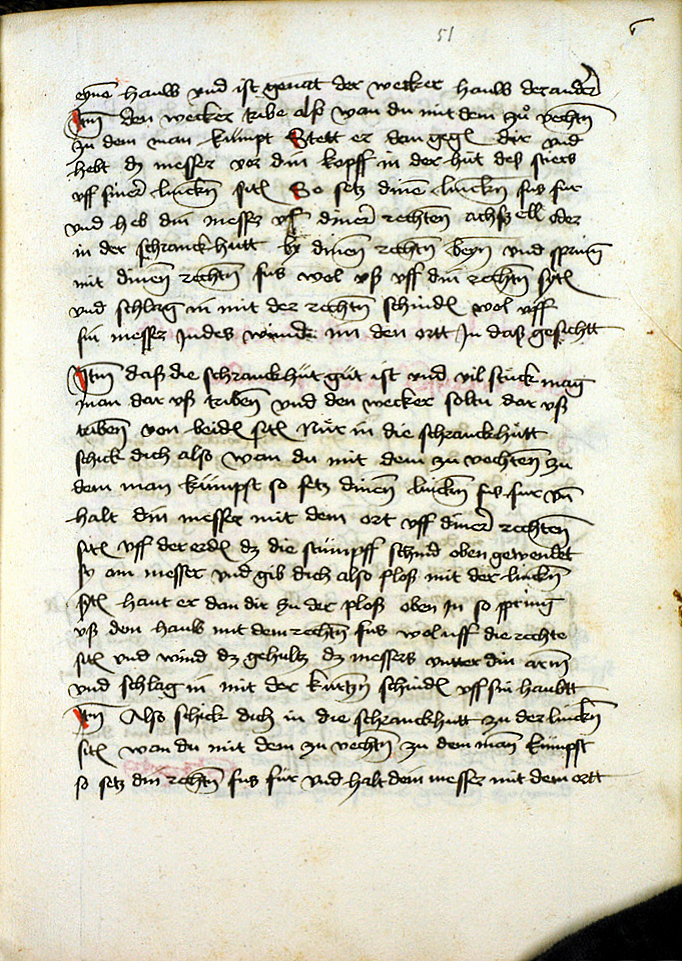 51
eyne hauw und ist genat der wecker hauw der ander
Itm den wecker tribe also wan du mit dem zů vechten
zu dem man kumpt Stett er dan gegen dir und
hebt dz messer vor dim kopff in der hůt des stiers
uff siner lincken sitē So setz dinē lincken fus fur
und heb din messer uff diner rechten achsell oder
in der schranckhůtt by dinen rechten beyn und spring
mit dinen rechten fus wol uß uff din rechten sytē
und schlag in mit der rechten schnidē wol uff
sin messer Indes winde im den ortt In daß gesichtt
Itm daß die schranckhůt gůt ist und vil stůck mag
man dar uß triben und den wecker soltu dar uß
triben von beidē sitē Nůr in die schranckhůtt
schick dich also wan du mit dem zu vechten zu
dem man kůmpst so setz dinen lincken fus fur un
halt din messer mit dem ort uff diner rechten
sitē uff der erdē dz die stůmpff schnid oben gewendet
sy am messer und gib dich also ploß mit der lincken
sytē haut er dan dir zu der ploß oben in so spring
uß dem hauw mit dem rechten fus wol uff die rechte
sitē und wind dz gehultz dz messers unter din arm
und schlag in mit der kurtzen schnidē uff sin haubtt
Itm Also schick dich in die schranckhutt zu der lincken
sitē wan du mit dem zu vechten zu dem man kumpst
so setz din rechten fus fůr und halt dein messer mit dem ortt